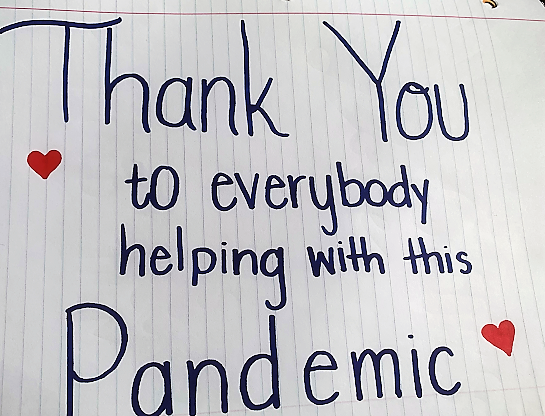 Thank You
to everybody
helping with this
Pandemic